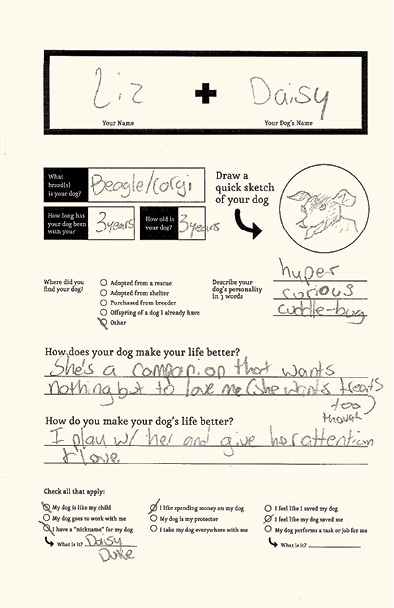 Liz + Daisy
Your Name Your Dog's Name
What breed(s) is your dog? Beagle/Corgi
Draw a quick sketch of your dog
How long has your dog been with your 3 years
How old is your dog? 3 years
Where did you find your dog?
Adopted from a rescue
Adopted from shelter
Purchased from breeder
Offspring of a dog I already have
Other
Describe your dog's personality in 3 words
hyper
curious
cuddle-bug
How does your dog make your life better?
She's a companion that wants
nothing but to love me (she wants treats
too
though)
How do you make your dog's life better?
I play w/ her and give her attention
& love.
Check all that apply:
My dog is like my child
My dog goes to work with me
I have a "nickname" for my dog
What is it? Daisy
Duke
I like spending money on my dog
My dog is my protector
I take my dog everywhere with me
I feel like I saved my dog
I feel like my dog saved me
My dog performs a task or job for me
What is it?